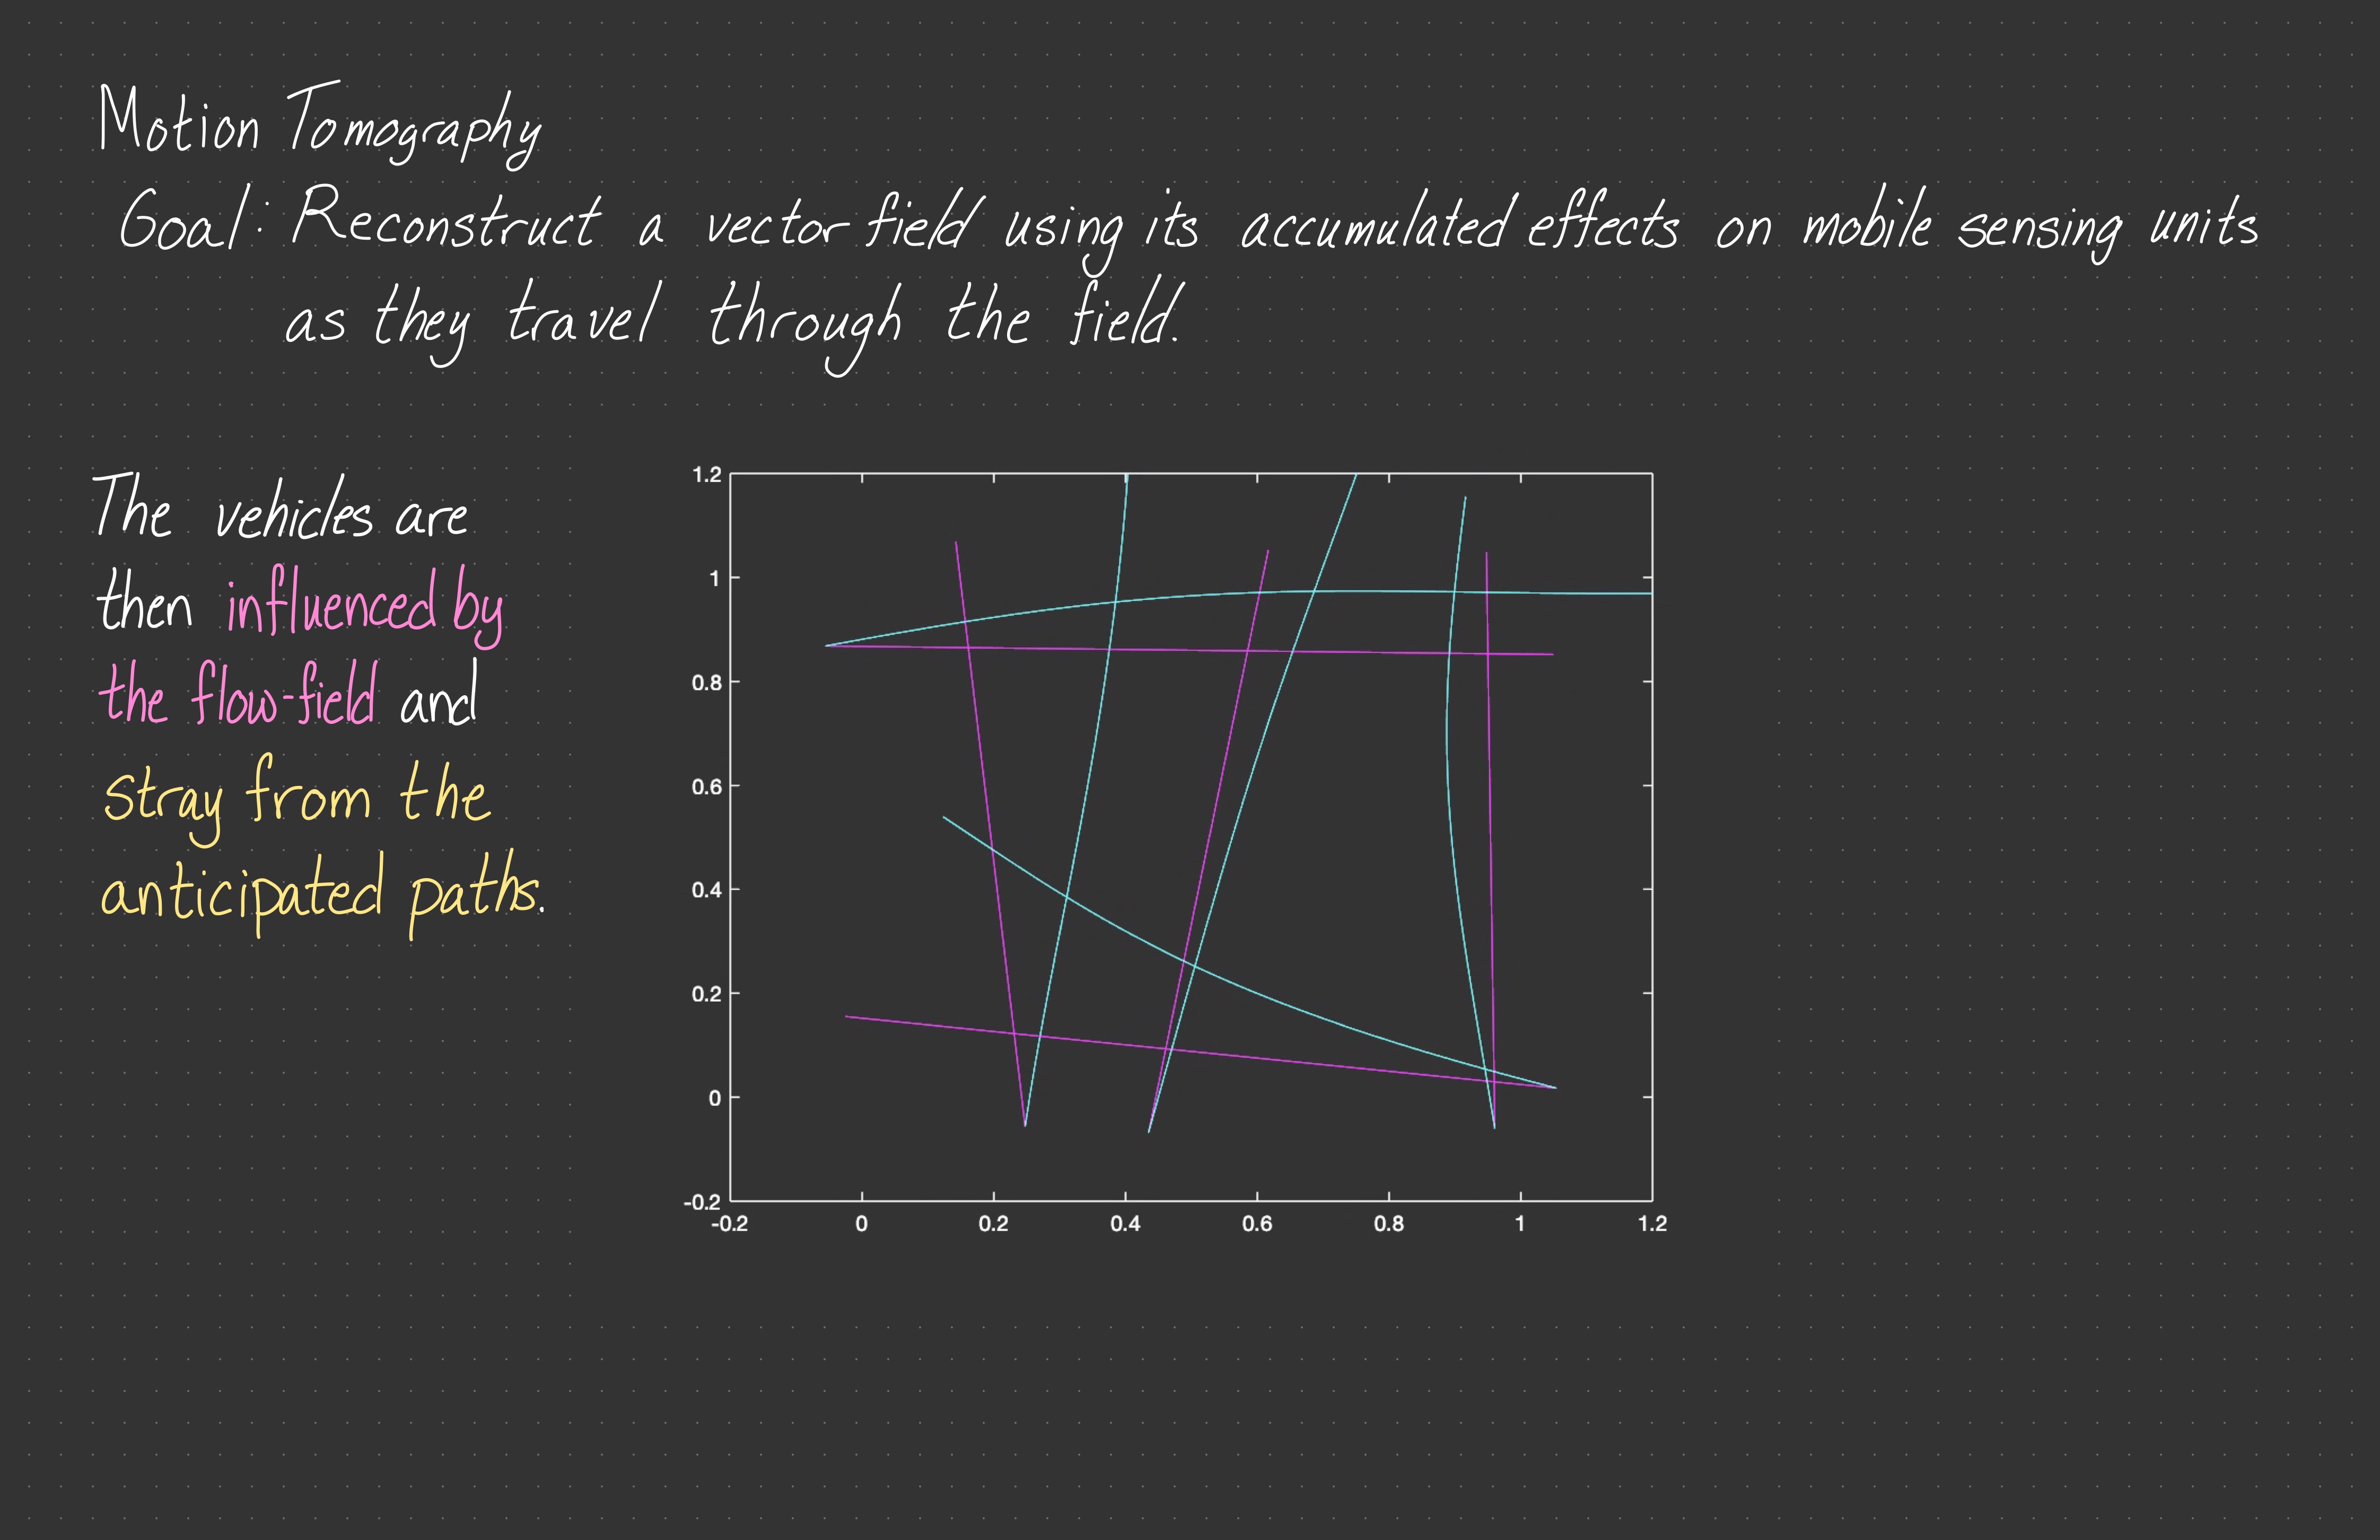 Motion Tomography
Goal: Reconstruct a vector field using its accumulated effects on mobile sensing units
as they travel through the field.
The vehicles are
then influenced by
the flow-field and
stray from the
anticipated paths.
1.2
1
0.8
0.6
0.4
0.2
0
-0.2
-0.2 0 0.2 0.4 0.6 0.8 1 1.2